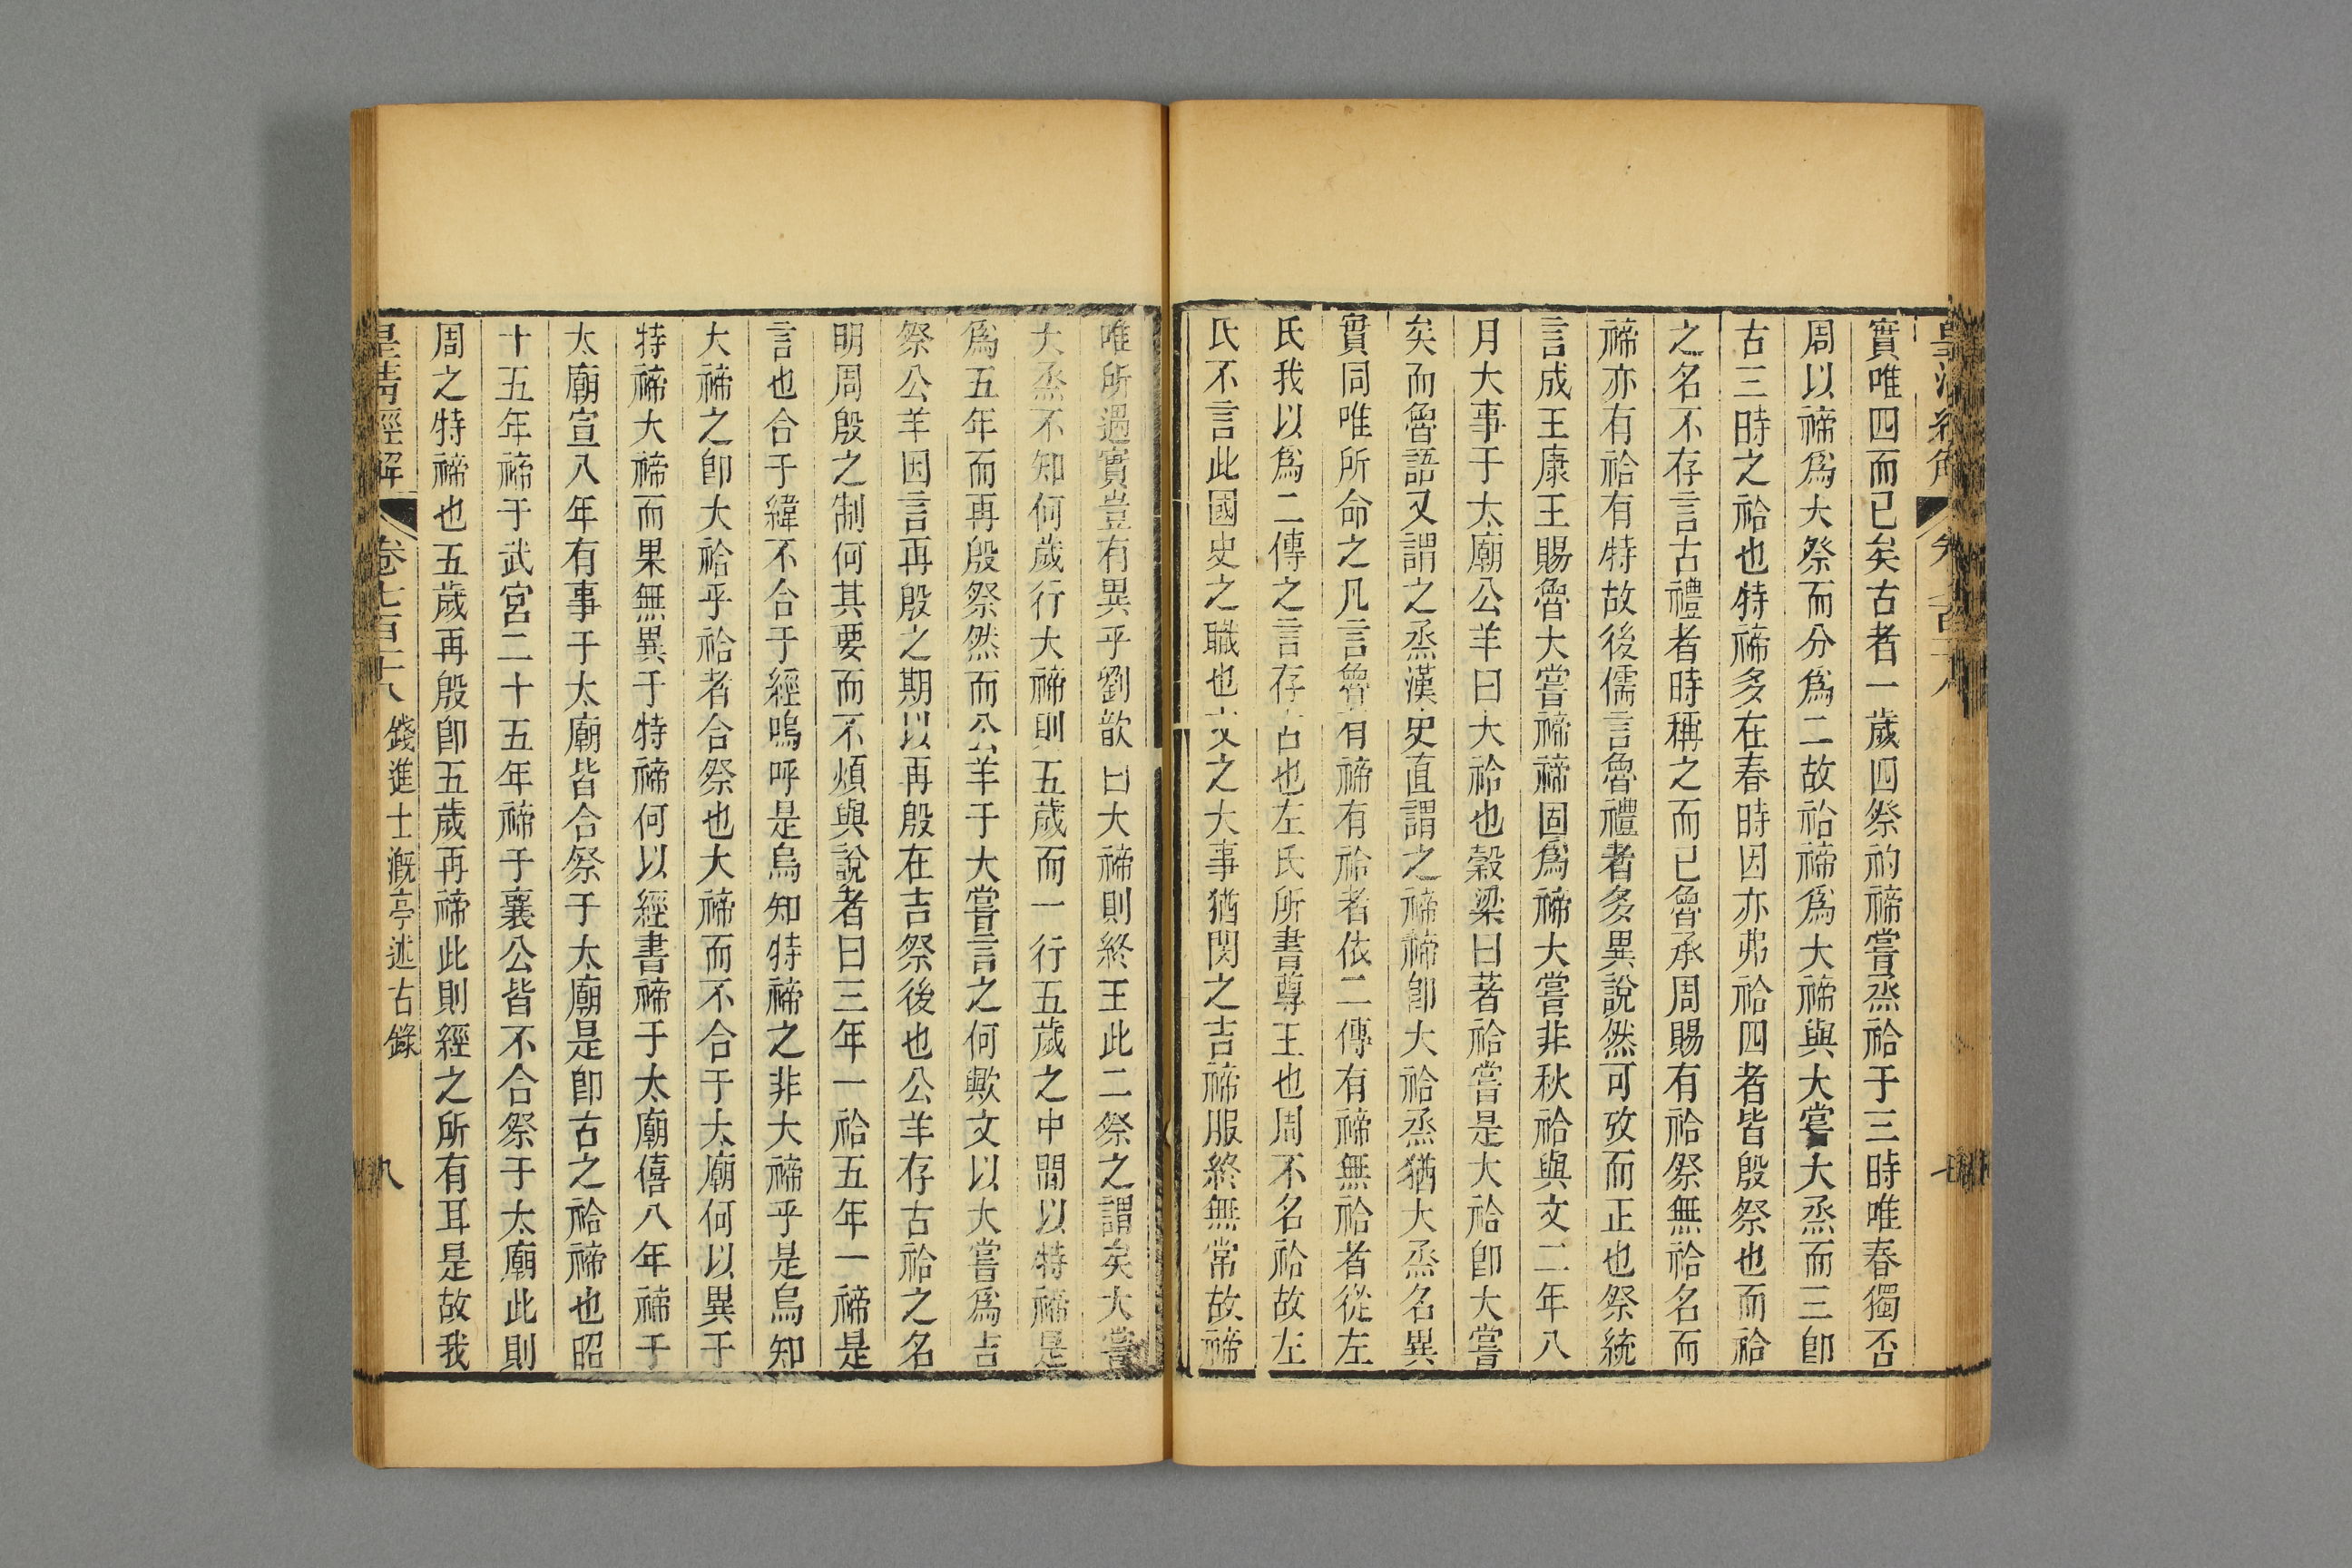 實唯四而已矣古者一歲四祭礿禘嘗烝祫于三時唯春獨否
周以禘爲大祭而分爲二故祫禘爲大禘與大嘗大烝而三卽
古三時之祫也特禘多在春時因亦弗祫四者皆殷祭也而祫
之名不存言古禮者時稱之而已魯承周賜有祫祭無祫名而
禘亦有祫有特故後儒言魯禮者多異說然可攷而正也祭統
言成王康王賜魯大嘗禘禘固爲禘大嘗非秋祫與文二年八
月大事于太廟公羊曰大祫也穀梁曰著祫嘗是大祫卽大嘗
矣而魯語又謂之烝漢史直謂之禘禘卽大祫烝猶大烝名異
實同唯所命之凡言魯有禘有祫者依二傳有禘無祫者從左
氏我以爲二傳之言存古也左氏所書尊王也周不名祫故左
氏不言此國史之職也文之大事猶閔之吉禘服終無常故禘
唯所遇實豈有異乎劉歆曰大禘則終王此二祭之謂矣大嘗
大烝不知何歲行大禘則五歲而一行五歲之中閒以特禘是
爲五年而再殷祭然而公羊于大嘗言之何歟文以大嘗爲吉
祭公羊因言再殷之期以再殷在吉祭後也公羊存古祫之名
明周殷之制何其要而不煩與說者曰三年一祫五年一禘是
言也合于緯不合于經嗚呼是烏知特禘之非大禘乎是烏知
大禘之卽大祫乎祫者合祭也大禘而不合于太廟何以異于
特禘大禘而果無異于特禘何以經書禘于太廟僖八年禘于
太廟宣八年有事于太廟皆合祭于太廟是卽古之祫禘也昭
十五年禘于武宮二十五年禘于襄公皆不合祭于太廟此則
周之特禘也五歲再殷卽五歲再禘此則經之所有耳是故我
皇清經解 卷七百十八 錢進士溉亭述古錄 八